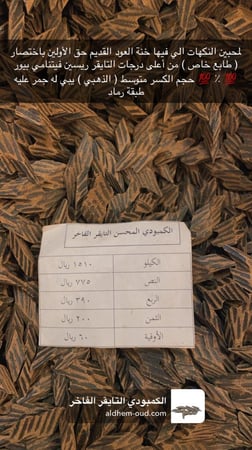 لمحبين النكهات الي فيها خنة العود القديم حق الأولين باختصار
( طابع خاص ) من أعلى درجات التايقر ريسين فيتنامي بيور
💯 ٪ 💯 حجم الكسر متوسط ( الذهبي ) يبي له جمر عليه
طبقة رماد
الكمبودي المحسن التايقر الفاخر
الكيلو ١٥١٠ ريال
النص ٧٧٥ ريال
الربع ٣٩٠ ريال
الثمن ٢٠٠ ريال
الأوقية ٦٠ ريال
الكمبودي التايقر الفاخر
aldhem-oud.com